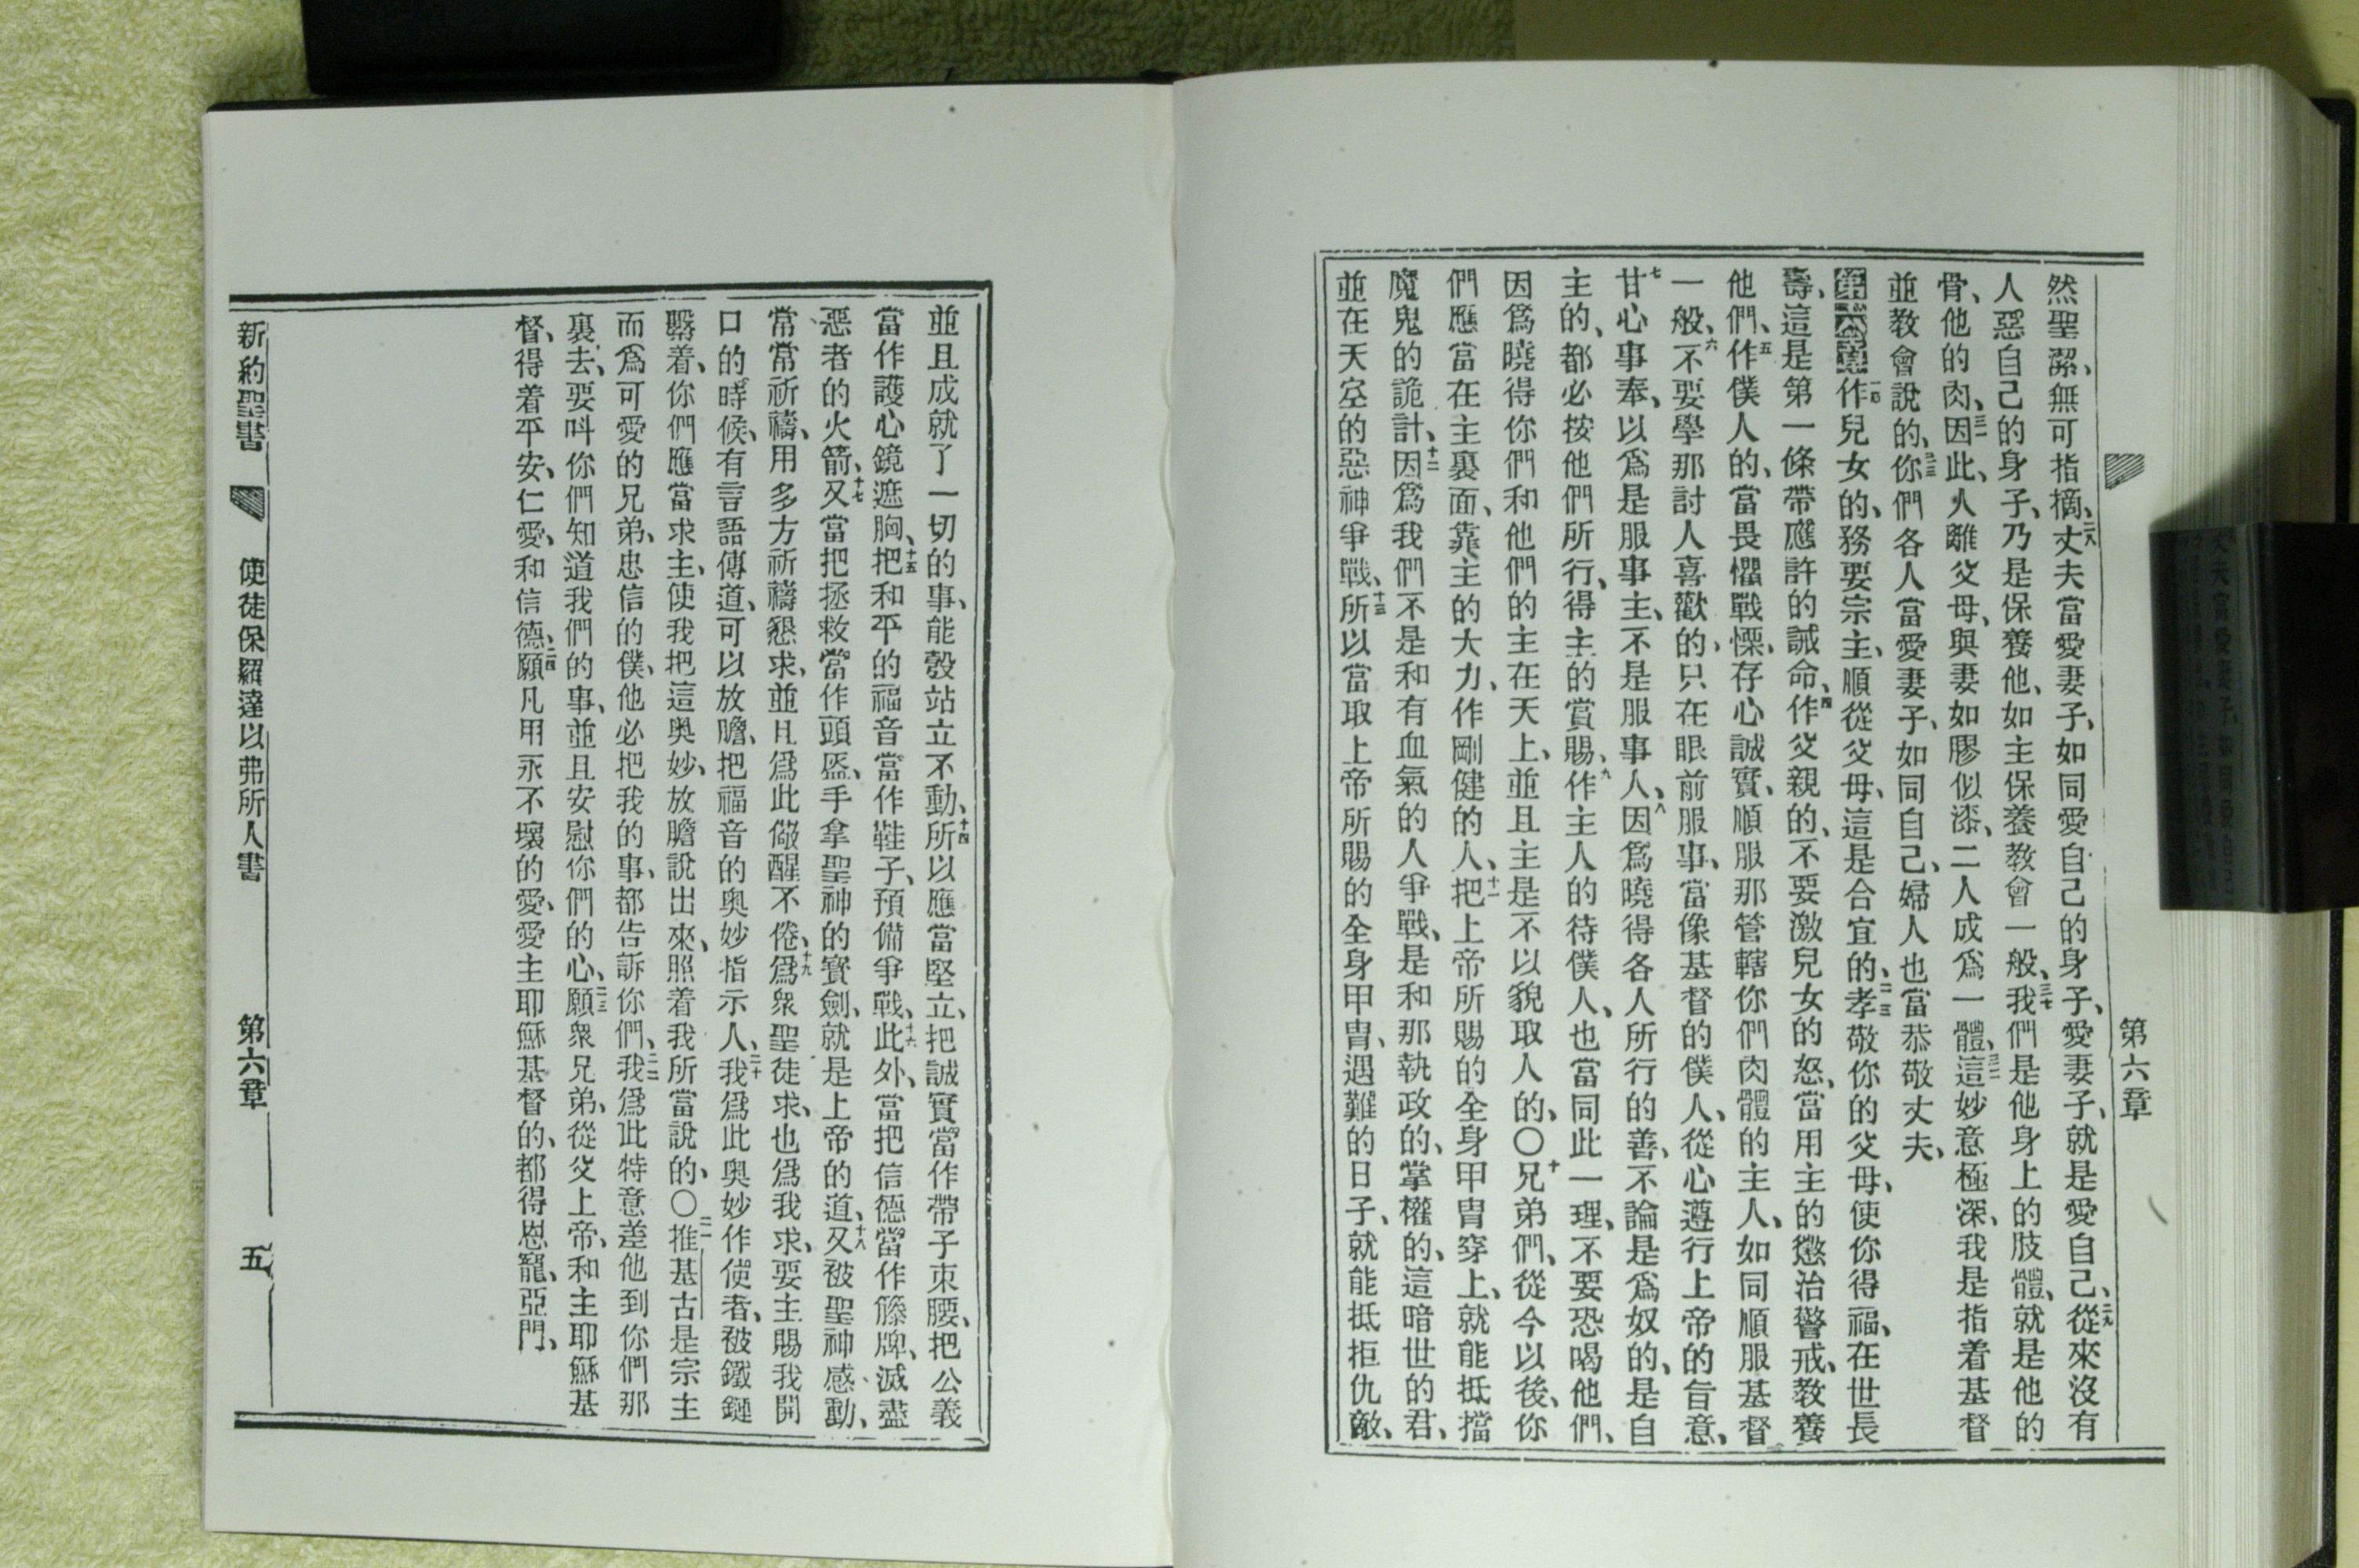 第六章
然聖潔、無可指摘、二八丈夫當愛妻子、如同愛自己的身子、愛妻子、就是愛自己、二九從來沒有
人惡自己的身子、乃是保養他、如主保養教會一般、三十我們是他身上的肢體、就是他的
骨、他的肉、三一因此、人離父母、與妻如膠似漆、二人成爲一體、三二這妙意極深、我是指着基督
並教會說的、三三你們各人當愛妻子、如同自己、婦人也當恭敬丈夫、
第六章一節作兒女的、務要宗主、順從父母、這是合宜的、二三孝敬你的父母、使你得福、在世長
壽、這是第一條帶應許的誡命、四作父親的、不要激兒女的怒、當用主的懲治警戒、教養
他們、五作僕人的、當畏懼戰慄、存心誠實、順服那管轄你們肉體的主人、如同順服基督
一般、六不要學那討人喜歡的、只在眼前服事、當像基督的僕人、從心遵行上帝的旨意、
七甘心事奉、以爲是服事主、不是服事人、八因爲曉得各人所行的善、不論是爲奴的、是自
主的、都必按他們所行、得主的賞賜、九作主人的待僕人、也當同此一理、不要恐喝他們、
因爲曉得你們和他們的主在天上、並且主是不以貌取人的、〇十兄弟們、從今以後、你
們應當在主裏面、靠主的大力、作剛健的人、十一把上帝所賜的全身甲冑穿上、就能抵擋
魔鬼的詭計、十二因爲我們不是和有血氣的人爭戰、是和那執政的、掌權的、這暗世的君、
並在天空的惡神爭戰、十三所以當取上帝所賜的全身甲冑、遇難的日子、就能抵拒仇敵、
並且成就了一切的事、能彀站立不動、十四所以應當堅立、把誠實當作帶子束腰、把公義
當作護心鏡遮胸、十五把和平的福音當作鞋子、預備爭戰、十六此外、當把信德當作籐牌、滅盡
惡者的火箭、十七又當把拯救當作頭盔、手拿聖神的寶劍、就是上帝的道、十八又被聖神感動、
常常祈禱、用多方祈禱懇求、並且爲此儆醒不倦、十九爲衆聖徒求、也爲我求、要主賜我開
口的時候、有言語傳道、可以放膽、把福音的奧妙指示人、二十我爲此奧妙作使者、被鐵鏈
繫着、你們應當求主、使我把這奧妙、放膽說出來、照着我所當說的、〇二一推基古是宗主
而爲可愛的兄弟、忠信的僕、他必把我的事、都告訴你們、二二我爲此特意差他到你們那
裏去、要叫你們知道我們的事、並且安慰你們的心、二三願衆兄弟、從父上帝、和主耶穌基
督、得着平安、仁愛、和信德、二四願凡用永不壞的愛、愛主耶穌基督的、都得恩寵、亞門、
新約聖書 使徒保羅達以弗所人書 第六章 五